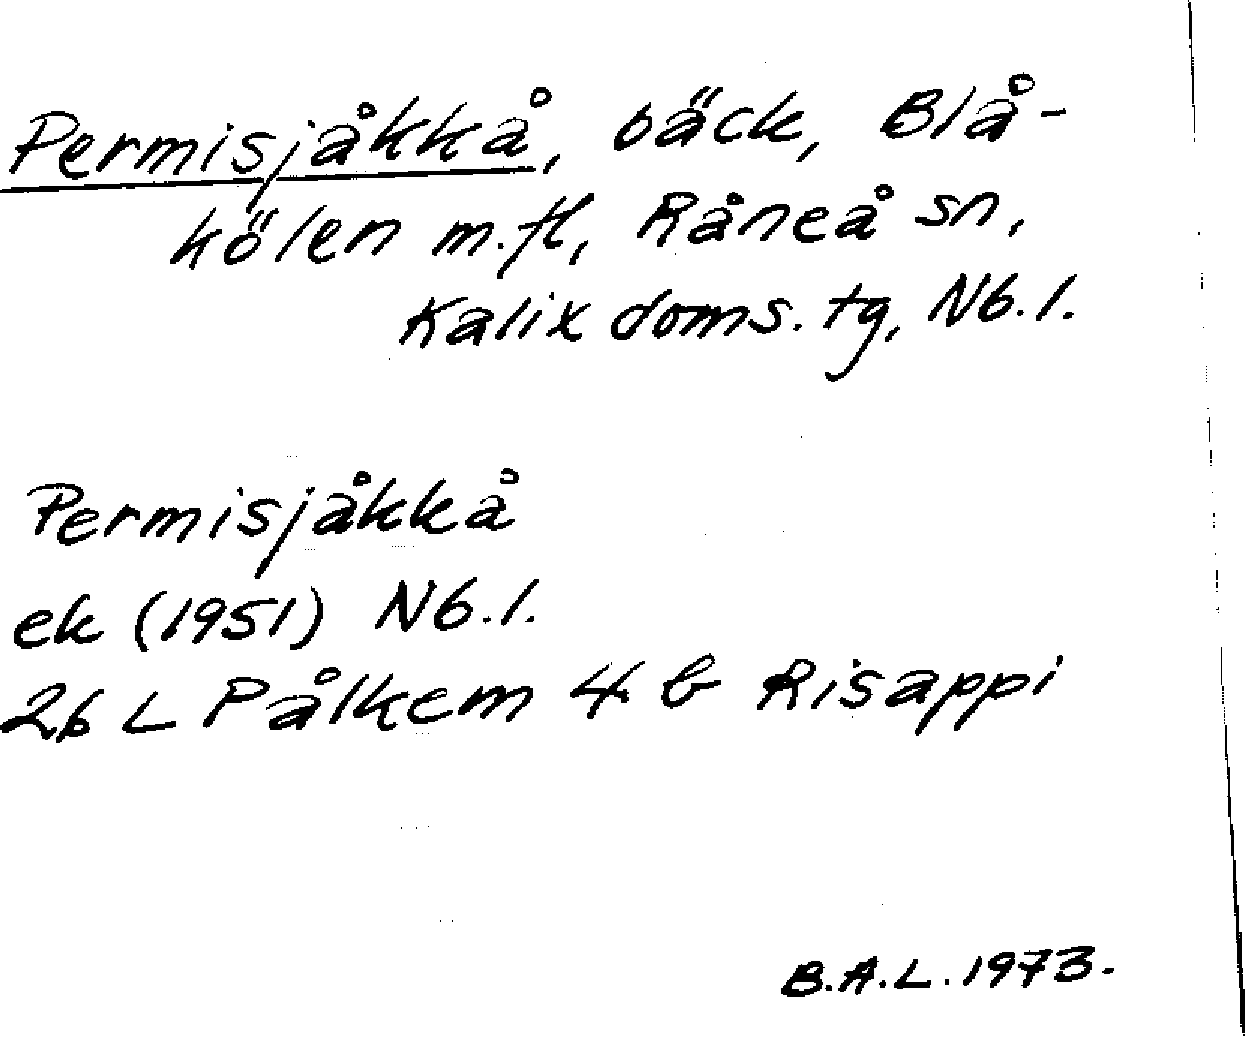 Permisjåkkå, bäck, Blå-
kölen m.fl, Råneå sn,
Kalix doms. tg, Nb. l.
Permisjåkkå
ek (1951) Nb. l.
26 L Pålkem 4 b Risappi
B.A.L. 1973.